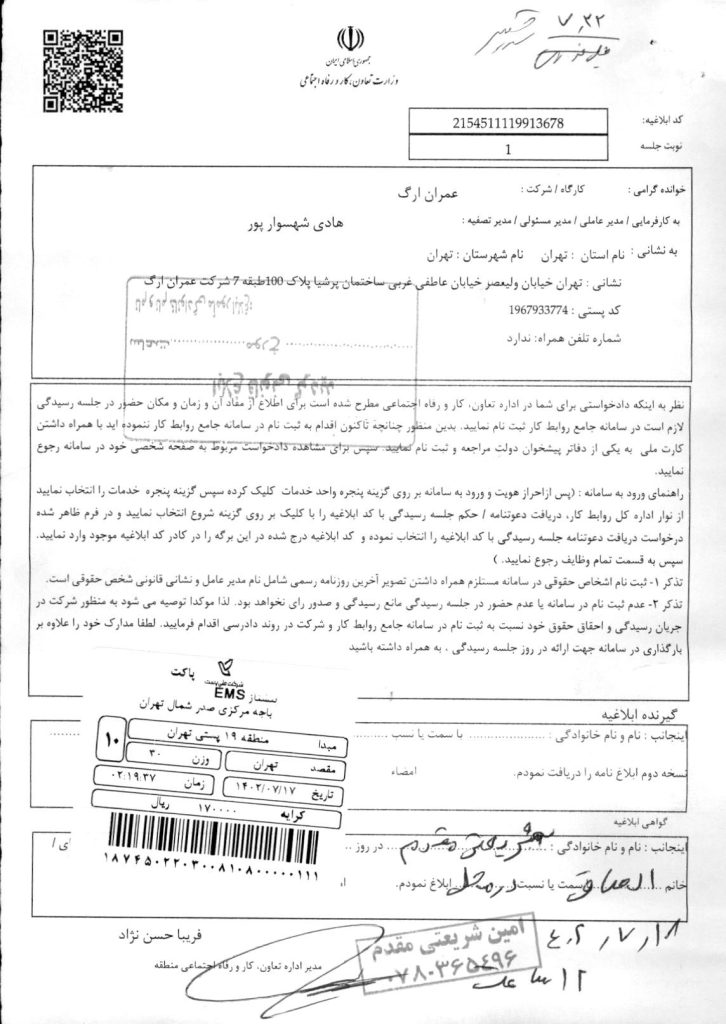 ۷٫۲۲
جمهوری اسلامی ایران
وزارت تعاون، کار و رفاه اجتماعی
کد ابلاغیه: 2154511119913678
نوبت جلسه 1
خوانده گرامی : کارگاه / شرکت : عمران ارگ
به کارفرمایی / مدیر عاملی / مدیر مسئولی / مدیر تصفیه : هادی شهسوار پور
به نشانی : نام استان : تهران نام شهرستان : تهران
نشانی : تهران خیابان ولیعصر خیابان عاطفی غربی ساختمان پرشیا پلاک 100طبقه 7 شرکت عمران ارگ
کد پستی : 1967933774
شماره تلفن همراه: ندارد
نام و نام خانوادگی مامور ابلاغ:
مورخ ساعت
ابلاغ قانونی گردید
نظر به اینکه دادخواستی برای شما در اداره تعاون، کار و رفاه اجتماعی مطرح شده است برای اطلاع از مفاد آن و زمان و مکان حضور در جلسه رسیدگی
لازم است در سامانه جامع روابط کار ثبت نام نمایید. بدین منظور چنانچه تاکنون اقدام به ثبت نام در سامانه جامع روابط کار ننموده اید با همراه داشتن
کارت ملی به یکی از دفاتر پیشخوان دولت مراجعه و ثبت نام نمایید. سپس برای مشاهده دادخواست مربوط به صفحه شخصی خود در سامانه رجوع
نمایید.
راهنمای ورود به سامانه : (پس ازاحراز هویت و ورود به سامانه بر روی گزینه پنجره واحد خدمات کلیک کرده سپس گزینه پنجره خدمات را انتخاب نمایید
از نوار اداره کل روابط کار، دریافت دعوتنامه / حکم جلسه رسیدگی با کد ابلاغیه را با کلیک بر روی گزینه شروع انتخاب نمایید و در فرم ظاهر شده
درخواست دریافت دعوتنامه جلسه رسیدگی با کد ابلاغیه را انتخاب نموده و کد ابلاغیه درج شده در این برگه را در کادر کد ابلاغیه موجود وارد نمایید.
سپس به قسمت تمام وظایف رجوع نمایید. )
تذکر 1- ثبت نام اشخاص حقوقی در سامانه مستلزم همراه داشتن تصویر آخرین روزنامه رسمی شامل نام مدیر عامل و نشانی قانونی شخص حقوقی است.
تذکر 2- عدم ثبت نام در سامانه یا عدم حضور در جلسه رسیدگی مانع رسیدگی و صدور رای نخواهد بود. لذا موکدا توصیه می شود به منظور شرکت در
جریان رسیدگی و احقاق حقوق خود نسبت به ثبت نام در سامانه جامع روابط کار و شرکت در روند دادرسی اقدام فرمایید. لطفا مدارک خود را علاوه بر
بارگذاری در سامانه جهت ارائه در روز جلسه رسیدگی ، به همراه داشته باشید
شرکت ملی پست
پاکت
سفناز EMS
باجه مرکزی صدر شمال تهران
مبدا منطقه ۱۹ پستی تهران ۱۰
مقصد تهران وزن ۳۰
تاریخ ۱۴۰۲/۰۷/۱۷ زمان ۰۲:۱۹:۳۷
کرایه ۱۷۰۰۰۰ ریال
۱۸۷۴۵۰۲۲۰۳۰۰۸۱۰۸۰۰۰۰۰۱۱۱
گیرنده ابلاغیه
اینجانب : نام و نام خانوادگی : .................. با سمت یا نسب ..........
نسخه دوم ابلاغ نامه را دریافت نمودم. امضاء
گواهی ابلاغیه
اینجانب : نام و نام خانوادگی : شریعتی مقدم در روز ...
خانم الصاق سمت یا نسبت در محل ابلاغ نمودم.
۴۰۲/۷/۱۸
ساعت ۱۲
امین شریعتی مقدم
۰۷۸۰۳۶۵۴۹۶
فریبا حسن نژاد
مدیر اداره تعاون، کار و رفاه اجتماعی منطقه